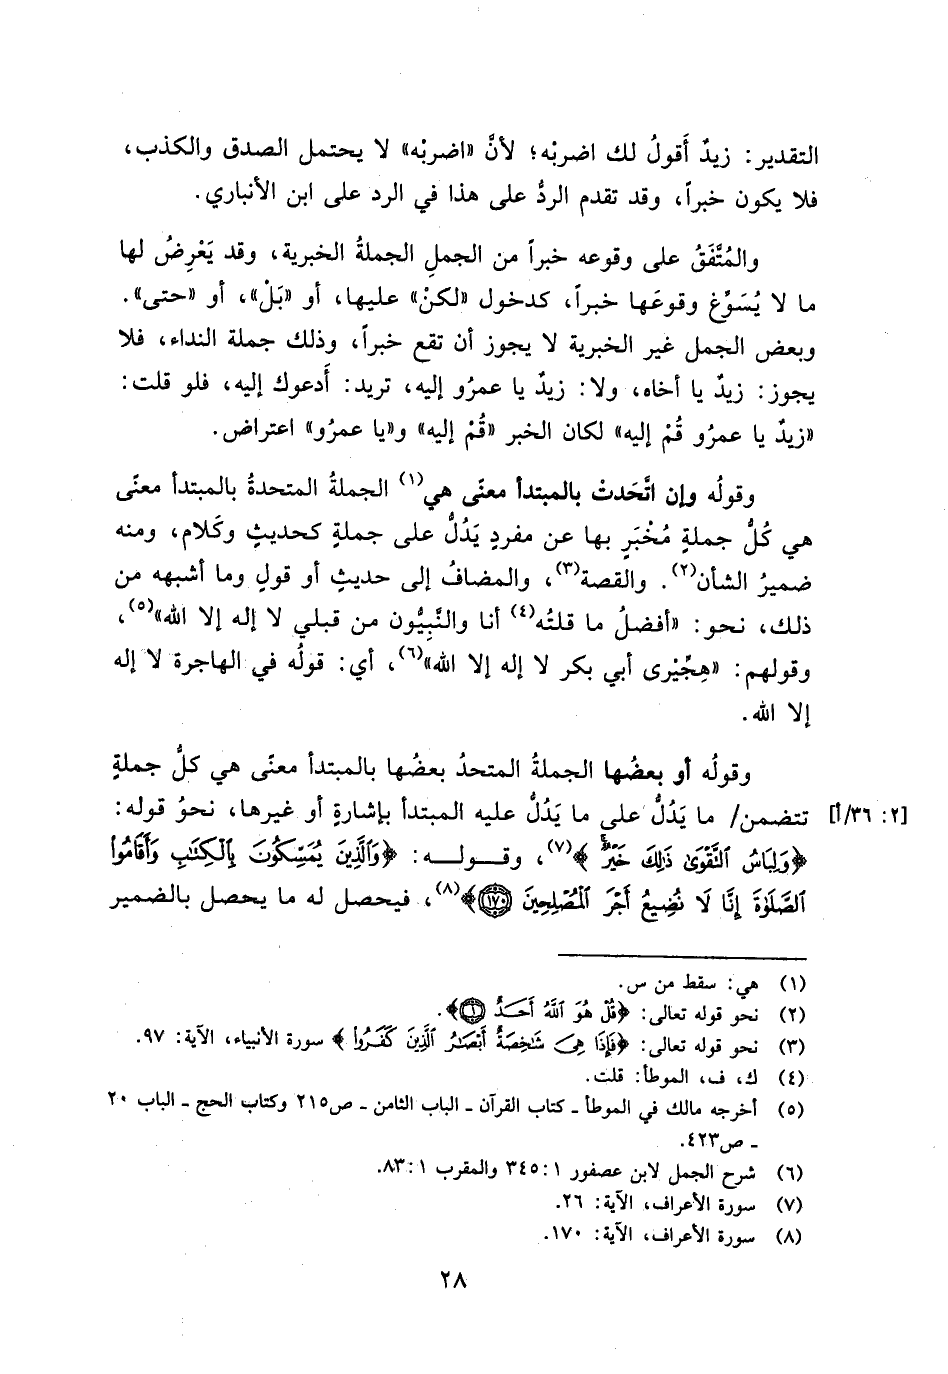 التقدير: زيدٌ أَقولُ لك اضربْه؛ لأنَّ «اضربْه» لا يحتمل الصدق والكذب،
فلا يكون خبراً، وقد تقدم الردُّ على هذا في الرد على ابن الأنباري.
والمُتَّفَقُ على وقوعه خبراً من الجملِ الجملةُ الخبرية، وقد يَعْرِضُ لها
ما لا يُسَوِّغ وقوعَها خبراً، كدخول «لكنْ» عليها، أو «بَلْ»، أو «حتى».
وبعض الجمل غير الخبرية لا يجوز أن تقع خبراً، وذلك جملة النداء، فلا
يجوز: زيدٌ يا أخاه، ولا: زيدٌ يا عمرُو إليه، تريد: أَدعوك إليه، فلو قلت:
«زيدٌ يا عمرُو قُمْ إليه» لكان الخبر «قُمْ إليه» و«يا عمرُو» اعتراض.
وقولُه وإن اتَّحَدتْ بالمبتدأ معنًى هي(١) الجملةُ المتحدةُ بالمبتدأ معنًى
هي كُلُّ جملةٍ مُخْبَرٍ بها عن مفردٍ يَدُلُّ على جملةٍ كحديثٍ وكَلام، ومنه
ضميرُ الشأن(٢). والقصة(٣)، والمضافُ إلى حديثٍ أو قولٍ وما أشبهه من
ذلك، نحو: «أفضلُ ما قلتُه(٤) أنا والنَّبِيُّون من قبلي لا إله إلا الله»(٥)،
وقولهم: «هِجِّيْرى أبي بكر لا إله إلا الله»(٦)، أي: قولُه في الهاجرة لا إله
إلا الله.
وقولُه أو بعضُها الجملةُ المتحدُ بعضُها بالمبتدأ معنًى هي كلُّ جملةٍ
[٢: ٣٦/أ] تتضمن/ ما يَدُلُّ على ما يَدُلُّ عليه المبتدأ بإشارةٍ أو غيرها، نحوُ قوله:
﴿وَلِبَاسُ ٱلتَّقْوَىٰ ذَٰلِكَ خَيْرٌ﴾(٧)، وقوله: ﴿وَٱلَّذِينَ يُمَسِّكُونَ بِٱلْكِتَٰبِ وَأَقَامُوا۟
ٱلصَّلَوٰةَ إِنَّا لَا نُضِيعُ أَجْرَ ٱلْمُصْلِحِينَ ١٧٠﴾(٨)، فيحصل له ما يحصل بالضمير
(١) هي: سقط من س.
(٢) نحو قوله تعالى: ﴿قُلْ هُوَ ٱللَّهُ أَحَدٌ ١﴾.
(٣) نحو قوله تعالى: ﴿فَإِذَا هِىَ شَٰخِصَةٌ أَبْصَٰرُ ٱلَّذِينَ كَفَرُوا۟﴾ سورة الأنبياء، الآية: ٩٧.
(٤) ك، ف، الموطأ: قلت.
(٥) أخرجه مالك في الموطأ ـ كتاب القرآن ـ الباب الثامن ـ ص٢١٥ وكتاب الحج ـ الباب ٢٠
ـ ص٤٢٣.
(٦) شرح الجمل لابن عصفور ١: ٣٤٥ والمقرب ١: ٨٣.
(٧) سورة الأعراف، الآية: ٢٦.
(٨) سورة الأعراف، الآية: ١٧٠.
٢٨